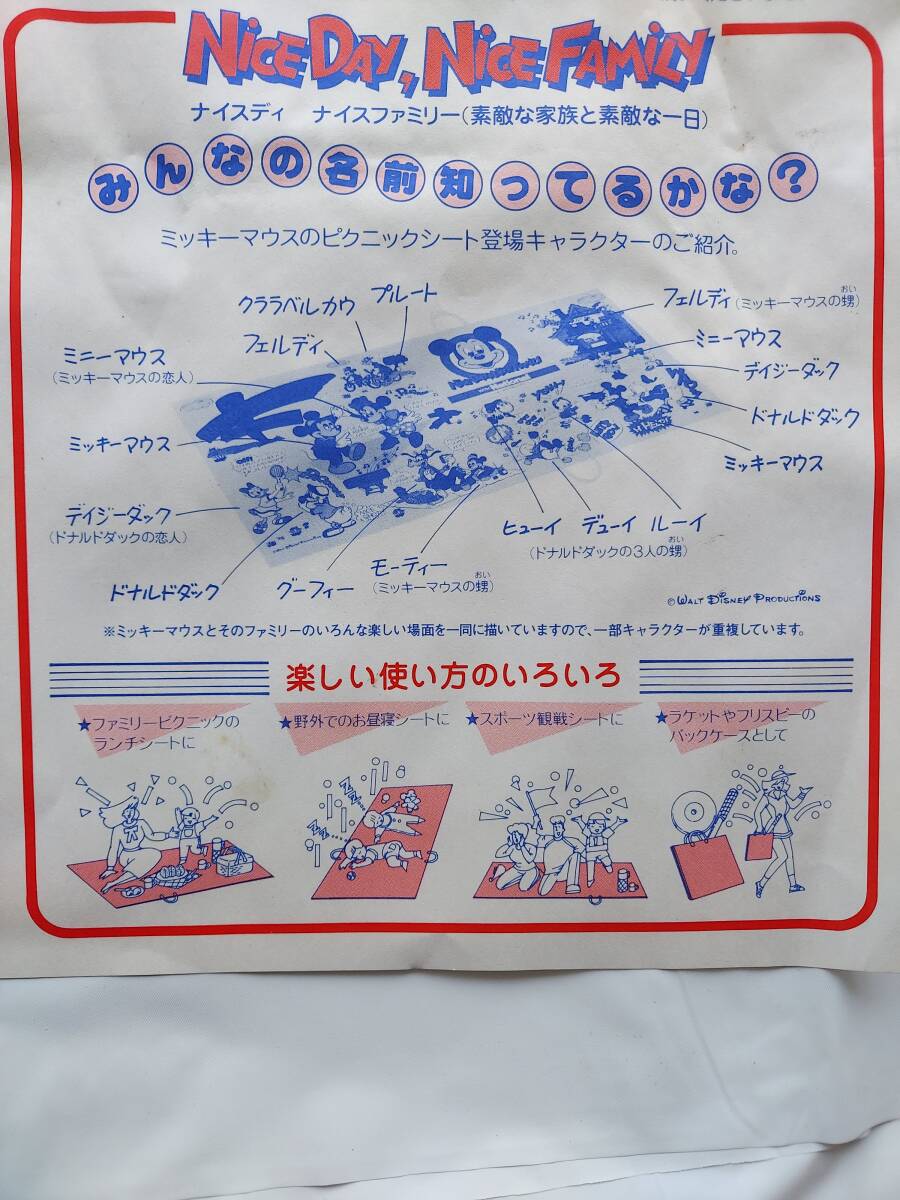 NICE DAY, NICE FAMILY
ナイスディ ナイスファミリー(素敵な家族と素敵な一日)
みんなの名前知ってるかな?
ミッキーマウスのピクニックシート登場キャラクターのご紹介。
クララベルカウ
プルート
フェルディ
ミニーマウス
(ミッキーマウスの恋人)
ミッキーマウス
デイジーダック
(ドナルドダックの恋人)
ドナルドダック
グーフィー
モーティー
おい
(ミッキーマウスの甥)
ヒューイ デューイ ルーイ
おい
(ドナルドダックの3人の甥)
おい
フェルディ(ミッキーマウスの甥)
ミニーマウス
デイジーダック
ドナルドダック
ミッキーマウス
©WALT DISNEY PRODUCTIONS
※ミッキーマウスとそのファミリーのいろんな楽しい場面を一同に描いていますので、一部キャラクターが重複しています。
楽しい使い方のいろいろ
★ファミリーピクニックの
ランチシートに
★野外でのお昼寝シートに
★スポーツ観戦シートに
★ラケットやフリスビーの
バックケースとして